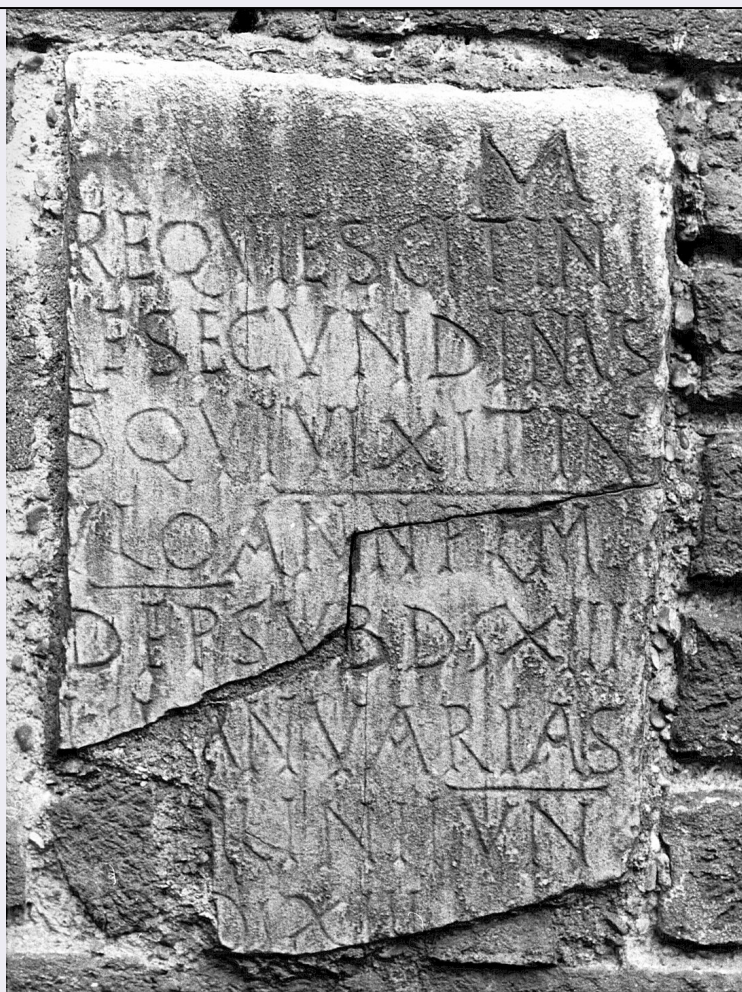 M
REQVIESCIT IN
P SECVNDINVS
S QVI VIXIT IN
LO ANN PLM
DEP SVB D S XII
ANVARIAS
VN
XIII